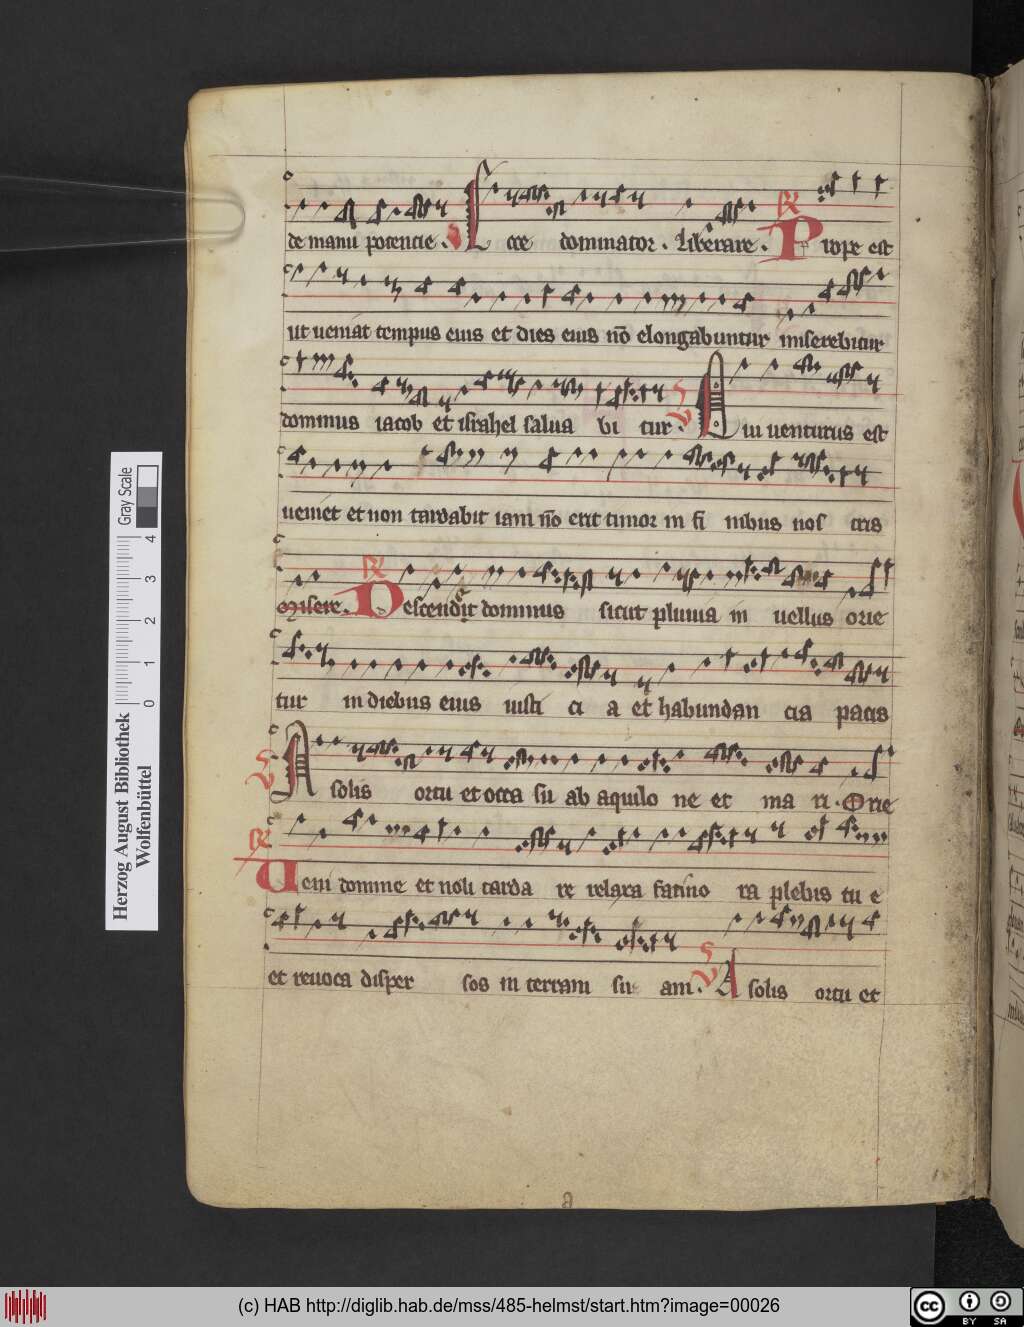 de manu potencie . V Ecce dominator . liberare . R Prope est
ut ueniat tempus eius et dies eius nō elongabuntur miserebitur
dominus iacob et israhel salua bi tur . V Qui uenturus est
ueniet et non tardabit iam nō erit timor in fi nibus nos tris
Misere . R Descendit dominus sicut pluuia in uellus orie
tur in diebus eius iusti ci a et habundan cia pacis
V A solis ortu et occa su ab aquilo ne et ma ri . Orie
R Ueni domine et noli tarda re relaxa facino ra plebis tu e
et reuoca disper sos in terram su am . V A solis ortu et
Herzog August Bibliothek
Wolfenbüttel
0 1 2 3 4
Gray Scale
(c) HAB http://diglib.hab.de/mss/485-helmst/start.htm?image=00026
cc BY SA